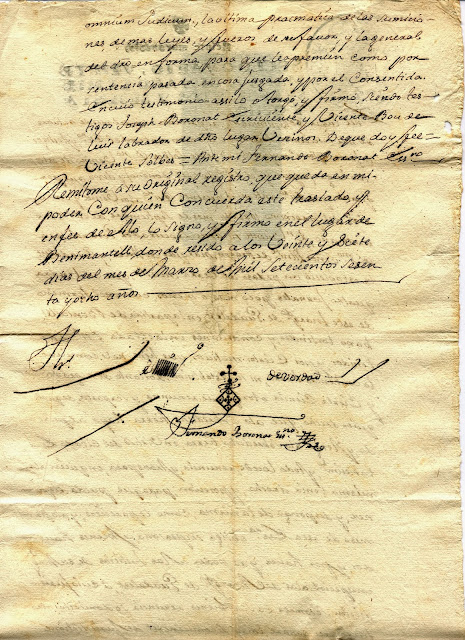 omnium Judicum, y la ultima pracmatica de las Sumicio
nes demas leyes, y fueros de su favor, y la general
del dro en forma para que le apremien como por
sentencia pasada en cosa juzgada, y por el consentida.
En cuio testimonio assi lo otorgó, y ffirmo, siendo tes
tigos Joseph Boronat Escriviente, y Vicente Bou de
Luis labrador de dho lugar vezinos. De que doy fee=
Vicente = Ante mi Fernando Boronat Essno
Remitome á su original registro, que queda en mi
poder, Con quien Concuerda este traslado, y
en fee de ello, lo signo, y ffirmo en el lugar de
Benimantell, donde resido a los Veinte y Siete
dias del mes de Marzo de Mil Setecientos Sesen
ta y ocho años.
de verdad
Fernando Boronat Essno